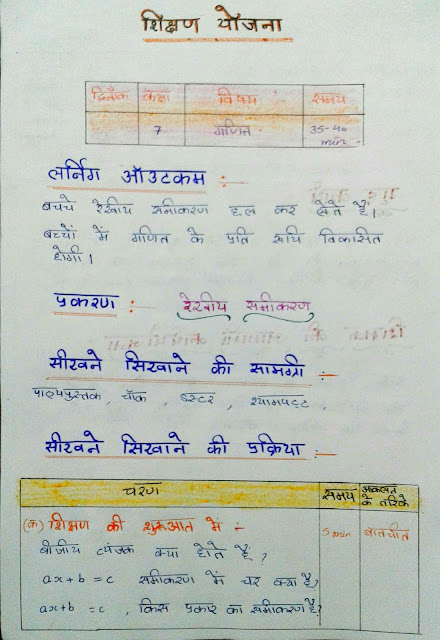 शिक्षण योजना
दिनाँक कक्षा विषय समय
7 गणित 35-40 min
लर्निंग ऑउटकम :-
बच्चे रेखीय समीकरण हल कर लेते हैं।
बच्चों में गणित के प्रति रूचि विकासित
होगी।
प्रकरण :- रेखीय समीकरण
सीखने सिखाने की सामग्री :-
पाठ्यपुस्तक, चॉक, डस्टर, श्यामपट्ट,
सीखने सिखाने की प्रक्रिया :-
चरण समय आकलन के तरिके
(क) शिक्षण की शुरुआत में :- 5 min बातचीत
बीजीय व्यंजक क्या होते हैं?
ax + b = c समीकरण में चर क्या है?
ax+b = c, किस प्रकार का समीकरण है?